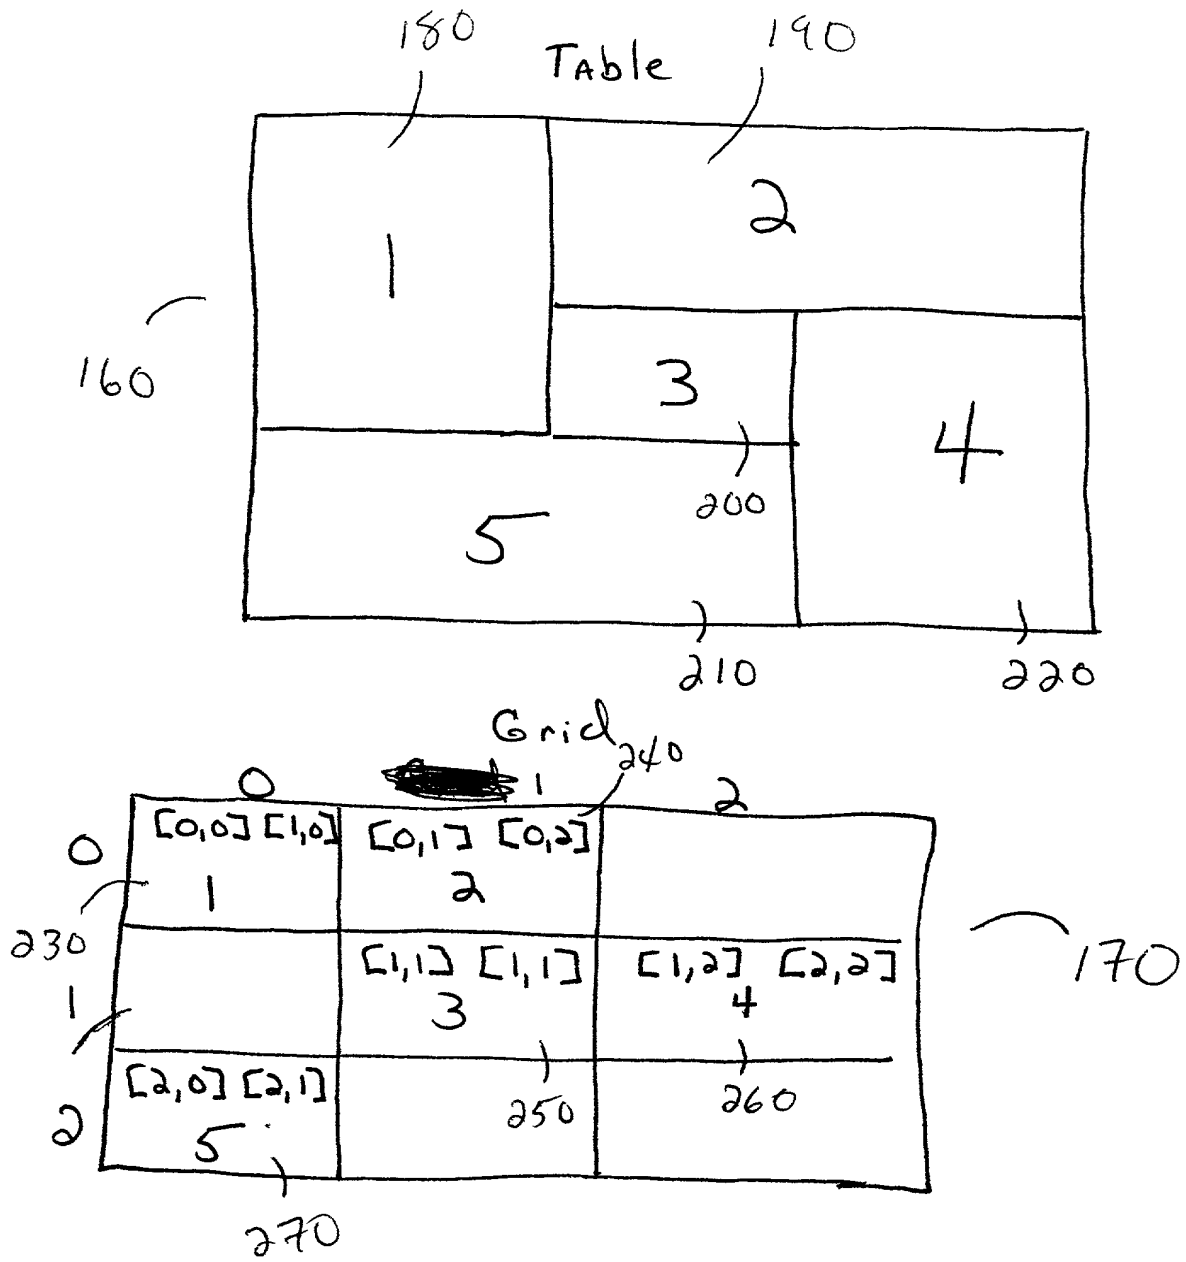 180
Table
190
1
2
160
3
4
200
5
210
220
Grid
240
0
1
2
0
[0,0] [1,0]
[0,1] [0,2]
1
2
230
[1,1] [1,1]
[1,2] [2,2]
170
1
3
4
[2,0] [2,1]
250
260
2
5
270